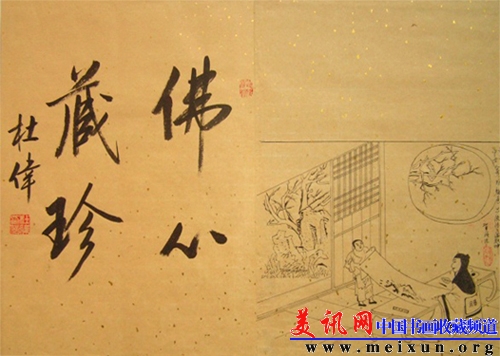 佛心
藏珍
杜偉
美讯网 中国书画收藏频道
www.meixun.org